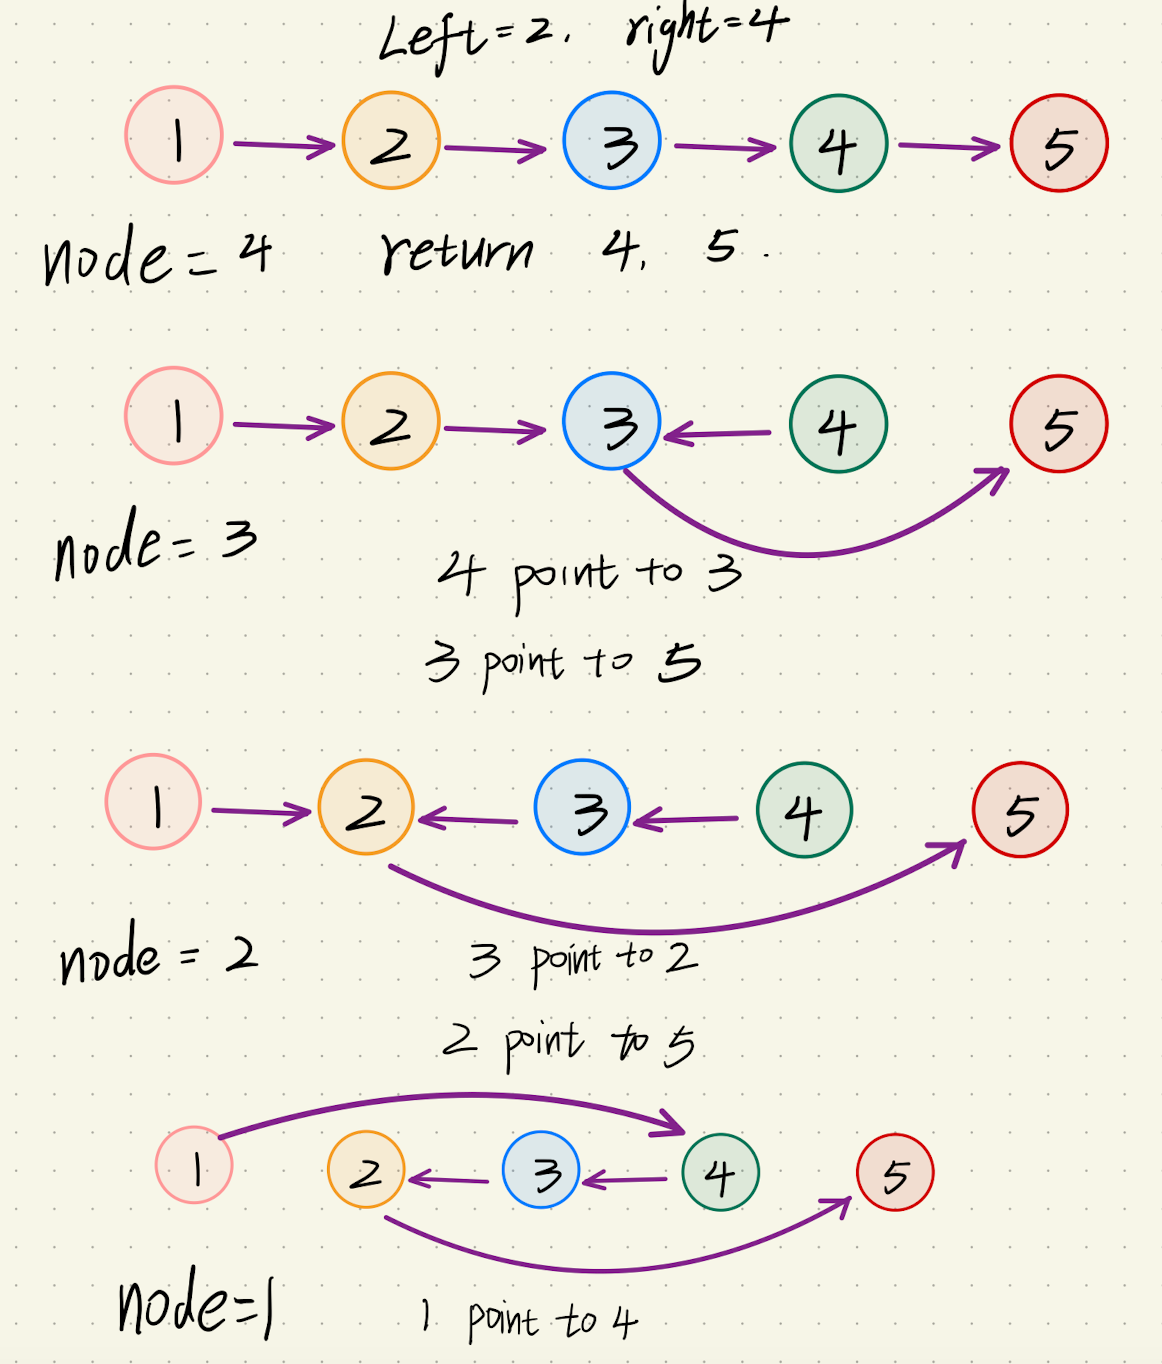 Left=2, right=4
1 2 3 4 5
node=4 return 4, 5.
1 2 3 4 5
node=3
4 point to 3
3 point to 5
1 2 3 4 5
node=2
3 point to 2
2 point to 5
1 2 3 4 5
node=1 1 point to 4